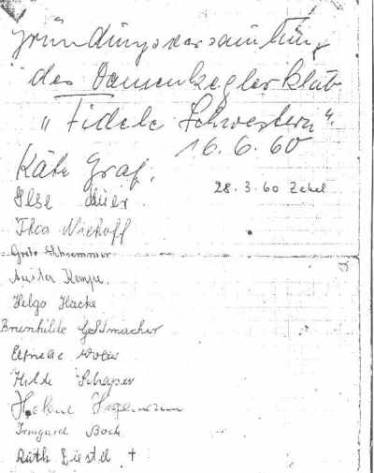 Gründungsversammlung
des Damenkeglerklub
„Fidele Schwestern“.
16.6.60
Käte Graf.
28.3.60 Zetel
Ilse
Thea Niehoff
Grete Schrammer
Anita Kempe
Helga Hacke
Brunhilde Goldmacher
Elfriede
Hilde Schaper
Irmgard Bock
Ruth Diestel +